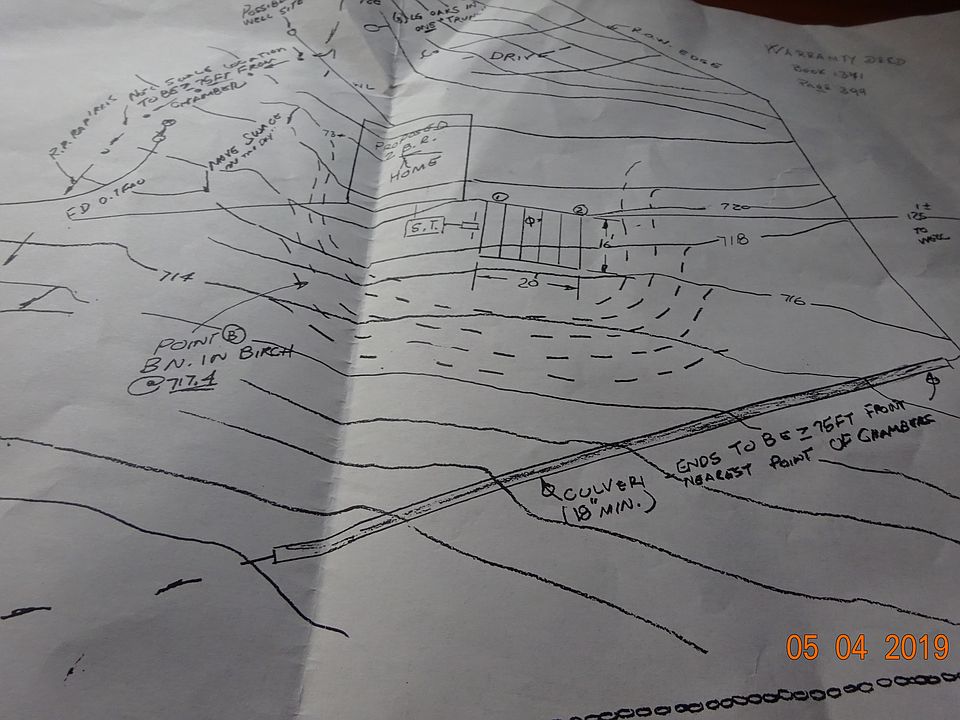 WELL SITE
(3) LG OAKS IN
ONE TRUNK
DRIVE
R.O.W. EDGE
WARRANTY DEED
BOOK 1341
PAGE 399
RIP RAP AREAS
NOTE: SWALE LOCATION
TO BE ≥ 75FT FROM
CHAMBER
MOVE SWALE
PROPOSED
2 B.R.
HOME
F.D. 0-1FRO
S.T.
1
2
16'
20'
720
718
716
714
1±
125
TO
WELL
POINT B
BN. IN BIRCH
@ 717.4
ENDS TO BE ≥ 75FT FROM
NEAREST POINT OF CHAMBERS
CULVERT
(18" MIN.)
05 04 2019